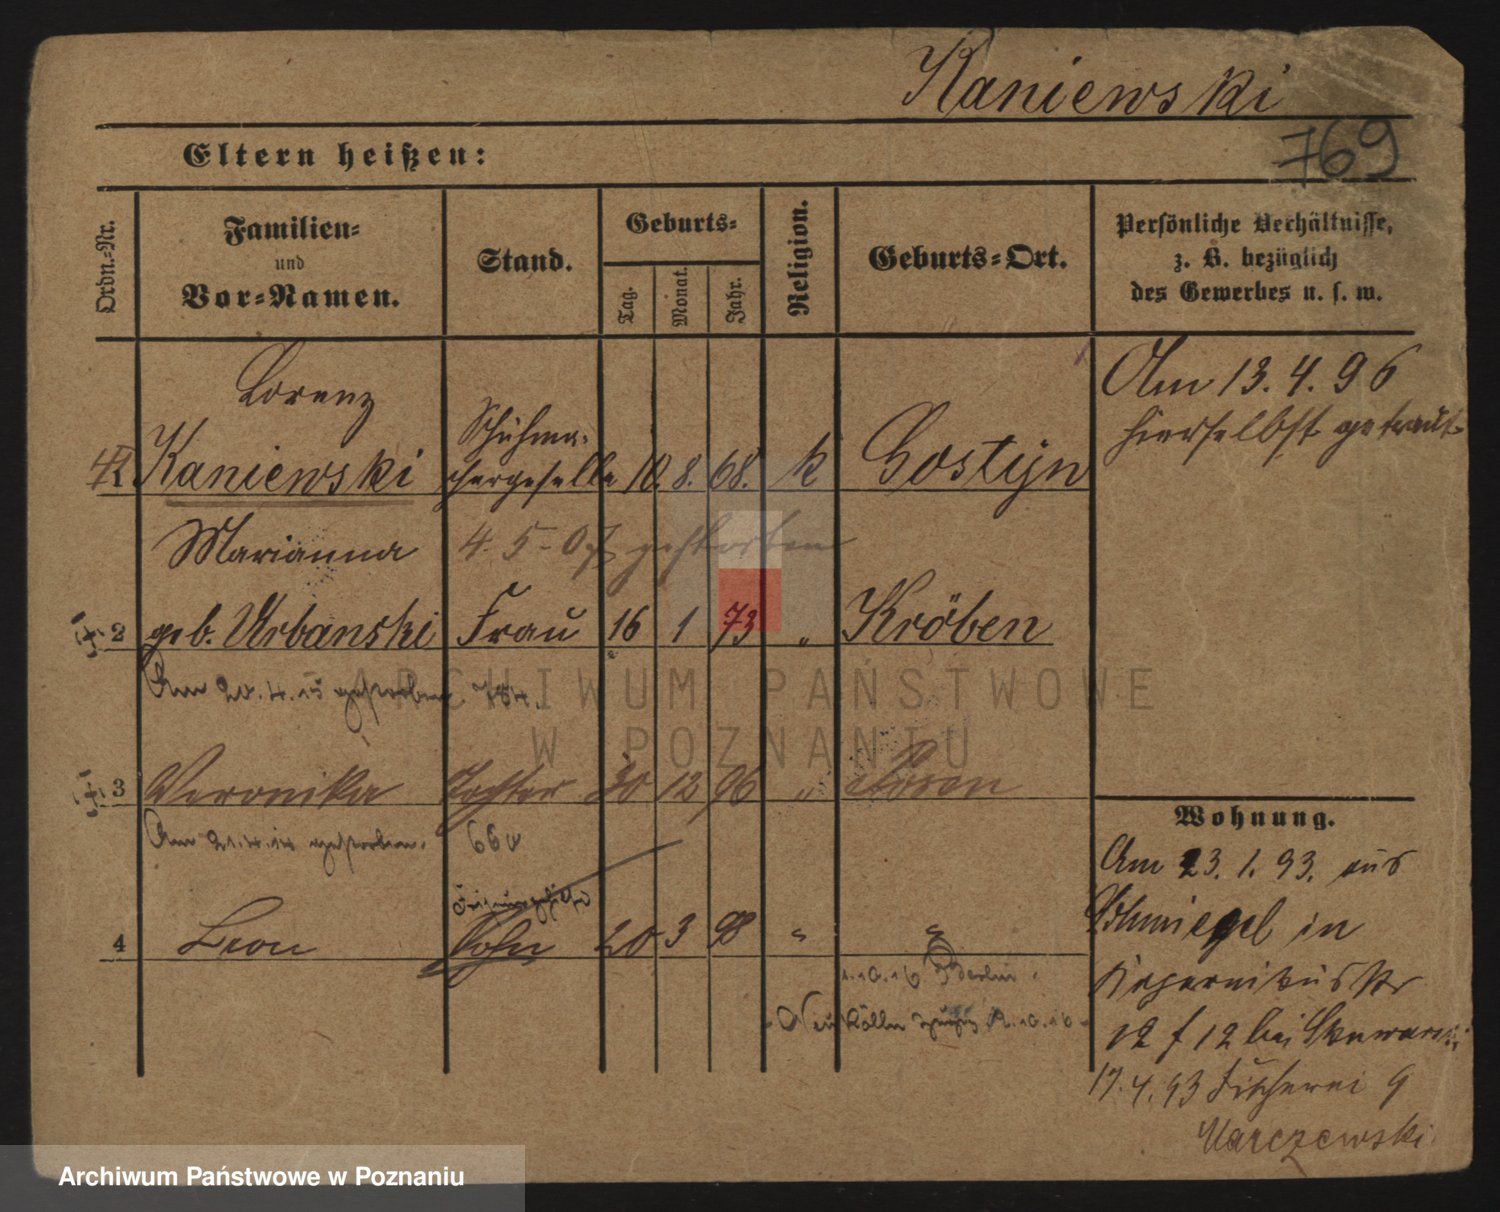 Kaniewski
769
Eltern heißen:
Ordn.-Nr.
Familien-
und
Vor-Namen.
Stand.
Geburts-
Tag.
Monat.
Jahr.
Religion.
Geburts-Ort.
Persönliche Verhältnisse,
z. B. bezüglich
des Gewerbes u. s. w.
Lorenz
Kaniewski
Schuhma-
chergeselle
10. 8. 68. k Gostyn
Am 13.4.96
hierselbst getraut
Marianna
4-5-07 gestorben
2 geb. Urbanski Frau 16 1 73 " Kröben
Am 20.4.15 gestorben 784.
3 Veronika Tochter 30 12 96 " Posen
Am 21.4.14 gestorben. 660
4 Leon Sohn 20 3 98 " "
1.10.16 Berlin
Neukölln 10.16
Wohnung.
Am 23.1.93. aus
Schmiegel in
12 f 12 bei
17.4.93 Fischerei 9
Marczewski
ARCHIWUM PAŃSTWOWE
W POZNANIU
Archiwum Państwowe w Poznaniu